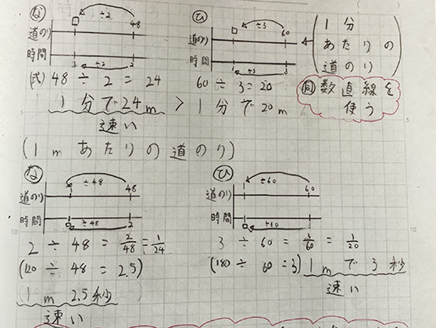 な
÷2
□ 48
道のり
時間
1 2
÷2
(式) 48 ÷ 2 = 24
1分で24m
速い
>
ひ
÷3
□ 60
道のり
時間
1 3
÷3
60 ÷ 3 = 20
1分で20m
(1分
あたりの
道のり)
数直線を
使う
(1mあたりの道のり)
な
÷48
1 48
道のり
時間
÷48
□ 2
2 ÷ 48 = 2/48 = 1/24
(120 ÷ 48 = 2.5)
1m 2.5秒
速い
ひ
÷60
1 60
道のり
時間
□
3 ÷ 60 = 3/60 = 1/20
(180 ÷ 60 = 3) 1mで3秒
速い